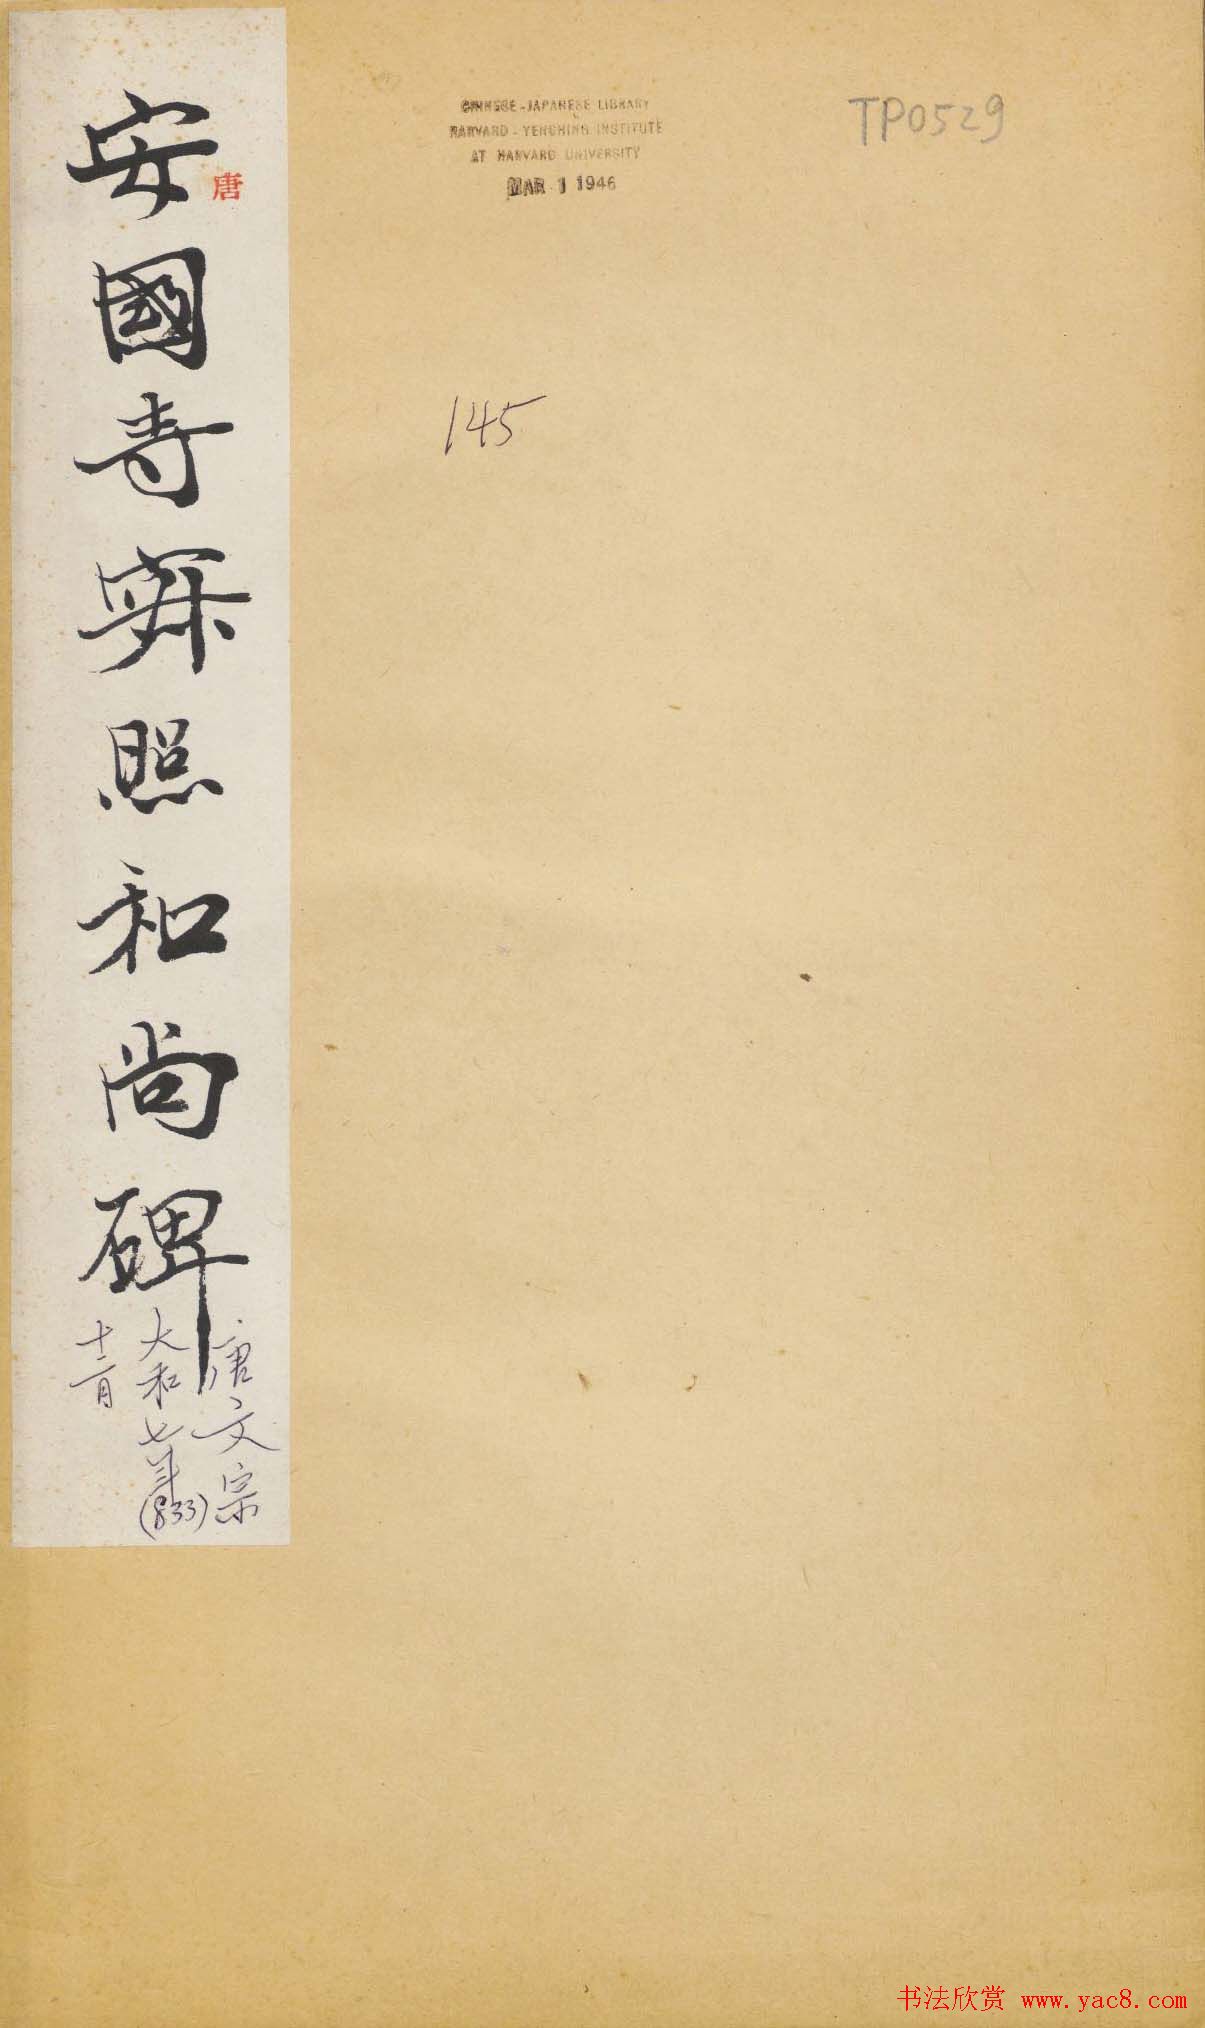 安國寺寂照和尚碑
唐
唐文宗
大和七年
(833)
十二月
CHINESE-JAPANESE LIBRARY
HARVARD-YENCHING INSTITUTE
AT HARVARD UNIVERSITY
MAR 1 1946
TP0529
145
书法欣赏 www.yac8.com